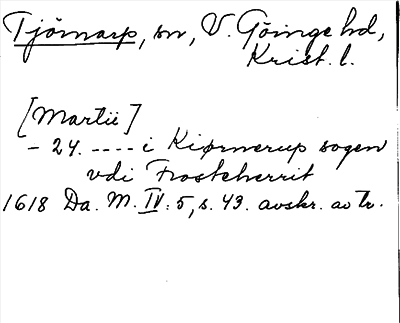 Tjörnarp, sn, V. Göinge hd,
Krist. l.
[Martii]
- 24. ---- i Kiørnerup sogen
vdi Frosteherrit
1618 Da. M. IV: 5, s. 43. avskr. av Tr.